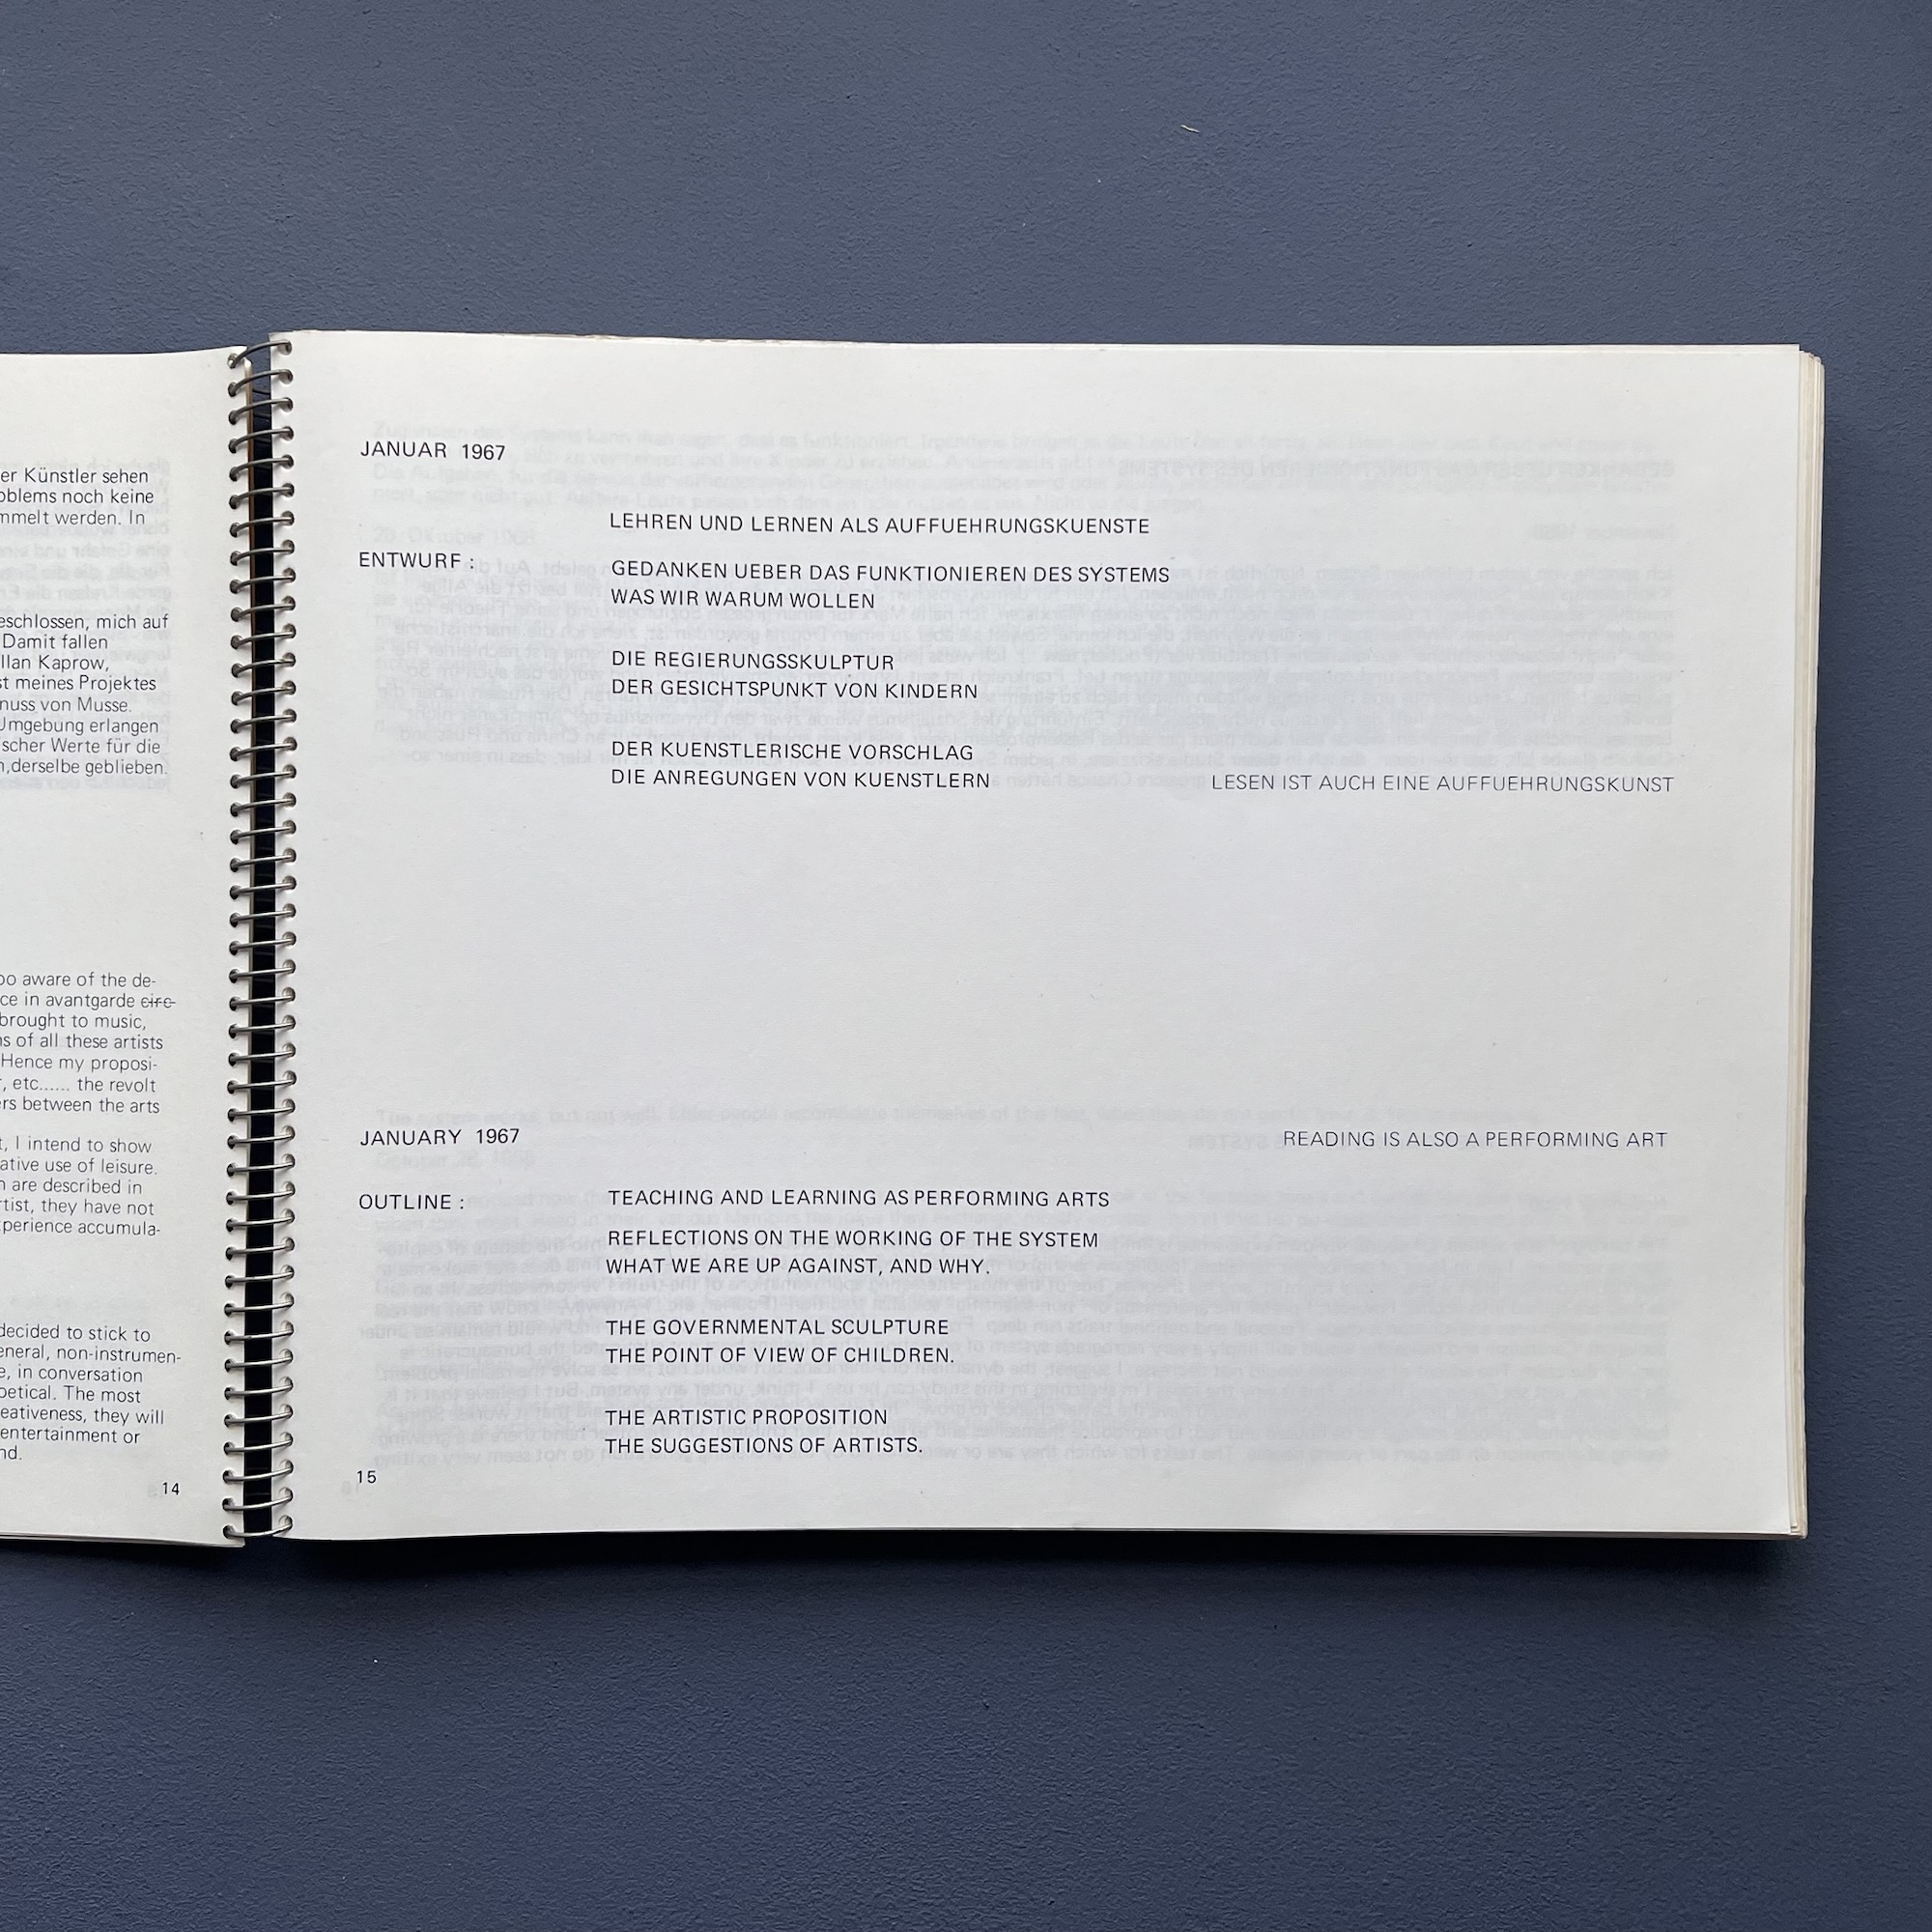 er Künstler sehen
oblems noch keine
mmelt werden. In
eschlossen, mich auf
Damit fallen
llan Kaprow,
st meines Projektes
nuss von Musse.
Umgebung erlangen
ischer Werte für die
n,derselbe geblieben.
oo aware of the de-
ce in avantgarde circ-
brought to music,
ns of all these artists
Hence my proposi-
r, etc...... the revolt
ers between the arts
t, I intend to show
ative use of leisure.
n are described in
rtist, they have not
xperience accumula-
decided to stick to
eneral, non-instrumen-
e, in conversation
oetical. The most
eativeness, they will
entertainment or
nd.
14
JANUAR 1967
LEHREN UND LERNEN ALS AUFFUEHRUNGSKUENSTE
ENTWURF :
GEDANKEN UEBER DAS FUNKTIONIEREN DES SYSTEMS
WAS WIR WARUM WOLLEN
DIE REGIERUNGSSKULPTUR
DER GESICHTSPUNKT VON KINDERN
DER KUENSTLERISCHE VORSCHLAG
DIE ANREGUNGEN VON KUENSTLERN
LESEN IST AUCH EINE AUFFUEHRUNGSKUNST
JANUARY 1967
READING IS ALSO A PERFORMING ART
OUTLINE :
TEACHING AND LEARNING AS PERFORMING ARTS
REFLECTIONS ON THE WORKING OF THE SYSTEM
WHAT WE ARE UP AGAINST, AND WHY.
THE GOVERNMENTAL SCULPTURE
THE POINT OF VIEW OF CHILDREN.
THE ARTISTIC PROPOSITION
THE SUGGESTIONS OF ARTISTS.
15